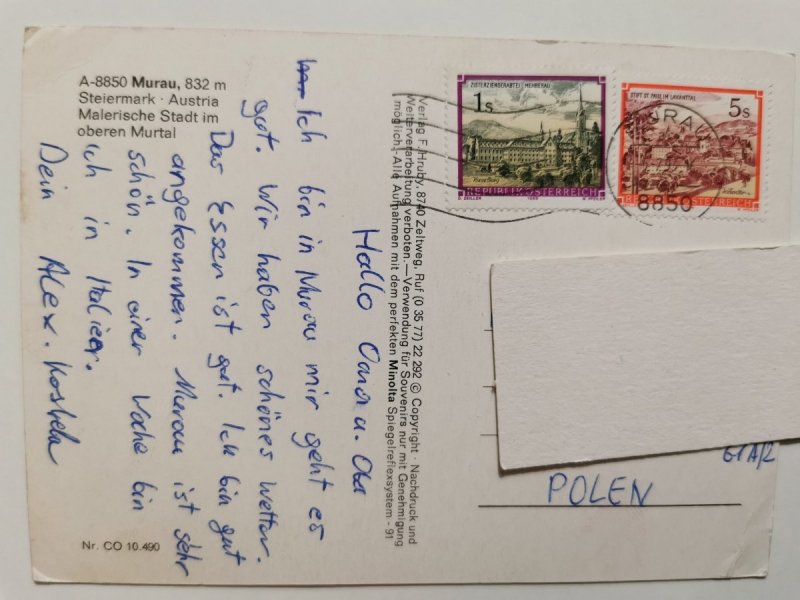 A-8850 Murau, 832 m
Steiermark · Austria
Malerische Stadt im
oberen Murtal
Hallo Oma u. Opa
Ich bin in Murau mir geht es
gut. Wir haben schönes Wetter.
Das Essen ist gut. Ich bin gut
angekommen. Murau ist sehr
schön. In einer Woche bin
ich in Italien.
Dein Alex.
Nr. CO 10.490
Verlag F. Hruby, 8740 Zeltweg, Ruf (0 35 77) 22 292 © Copyright · Nachdruck und
Weiterverarbeitung verboten. — Verwendung für Souvenirs nur mit Genehmigung
möglich! · Alle Aufnahmen mit dem perfekten Minolta Spiegelreflexsystem - 91
ZISTERZIENSERABTEI MEHRERAU
1s
REPUBLIK ÖSTERREICH
STIFT ST. PAUL IM LAVANTTAL
5s
REPUBLIK ÖSTERREICH
MURAU
8850
POLEN